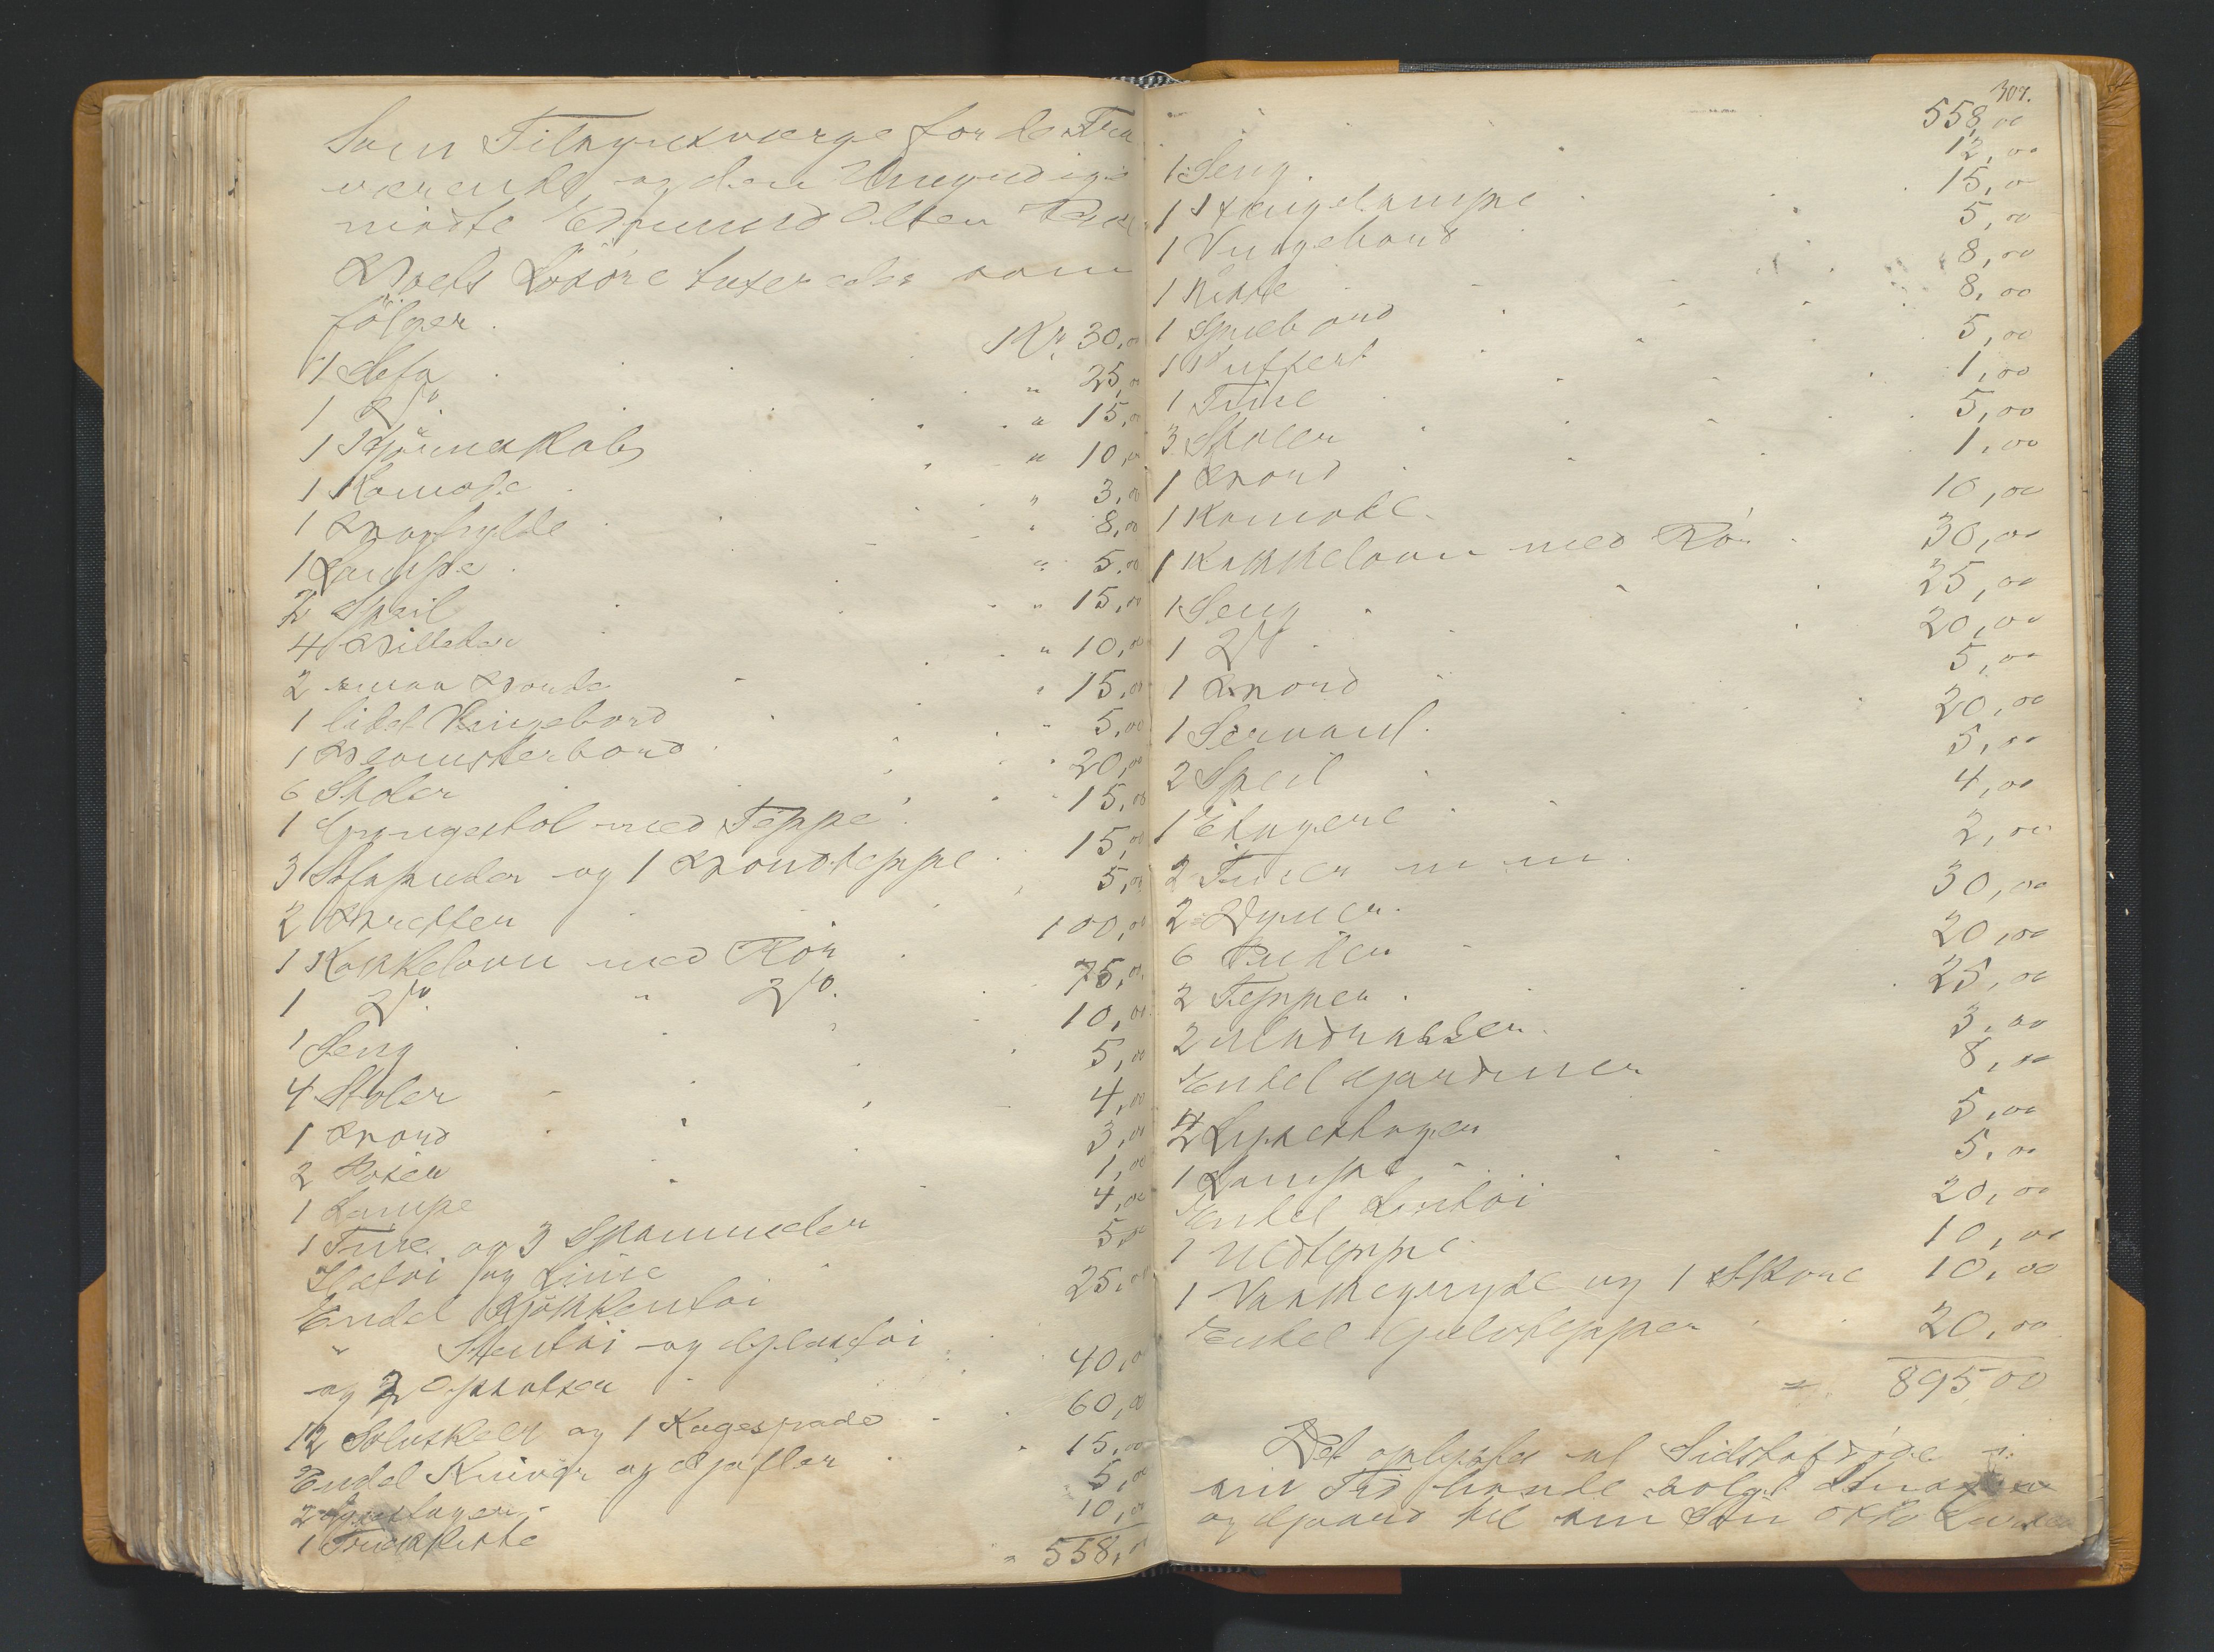 Som Tilsynsværge for de Fra
værende og den Umyndige
mødte Edmund Olsen
Boets Løsøre taxeredes som
følger.
1 Sofa Kr. 30,00
1 Do. " 25,00
1 Hjørneskab " 15,00
1 Komode " 10,00
1 Boghylde " 3,00
1 Lampe " 8,00
2 Speil " 5,00
4 Billeder " 15,00
2 smaa Borde " 10,00
1 lidet Hengebord " 15,00
1 Blomsterbord " 5,00
6 Stoler " 20,00
1 Gyngestol med Teppe 15,00
3 Sofaputer og 1 Bordteppe 15,00
2 Bretter 5,00
1 Kakkelovn med Rør 100,00
1 Do. " Do. 75,00
1 Seng 10,00
4 Stoler 5,00
1 Bord 4,00
2 Potter 3,00
1 Lampe 1,00
1 Tine og 3 Spannuder 4,00
og Line 5,00
Endel Kjøkkentøi 25,00
" Stentøi og Glastøi
og 2 Opsatser 40,00
12 Sølvskeer og 1 Kagespade 60,00
Endel Kniver og Gafler 15,00
2 Lysestager 5,00
1 10,00
" 558,00
307.
558,00
1 Seng 12,00
1 Hengelampe 15,00
1 5,00
1 Kiste 8,00
1 Spisebord 8,00
1 Kuffert 5,00
1 Tine 1,00
3 Stoler 5,00
1 Bord 1,00
1 Komode 10,00
1 Kakkelovn med Rør 30,00
1 Seng 25,00
1 Do 20,00
1 Bord 5,00
1 Servant 20,00
2 Speil 5,00
1 Etagere 4,00
2 Tiner m m 2,00
2 Dyner 30,00
6 Puder 20,00
2 Tepper 25,00
2 Madrasser 3,00
Endel Gardiner 8,00
2 Lysestager 5,00
1 Lampe 5,00
Endel Lintøi 20,00
1 Uldteppe 10,00
1 Vaskegryde og 1 10,00
Endel Gulvtepper 20,00
895,00
Det oplystes at Sidstafdøde i
sin Tid havde solgt
og Gaard til sin Søn Otto Larsen